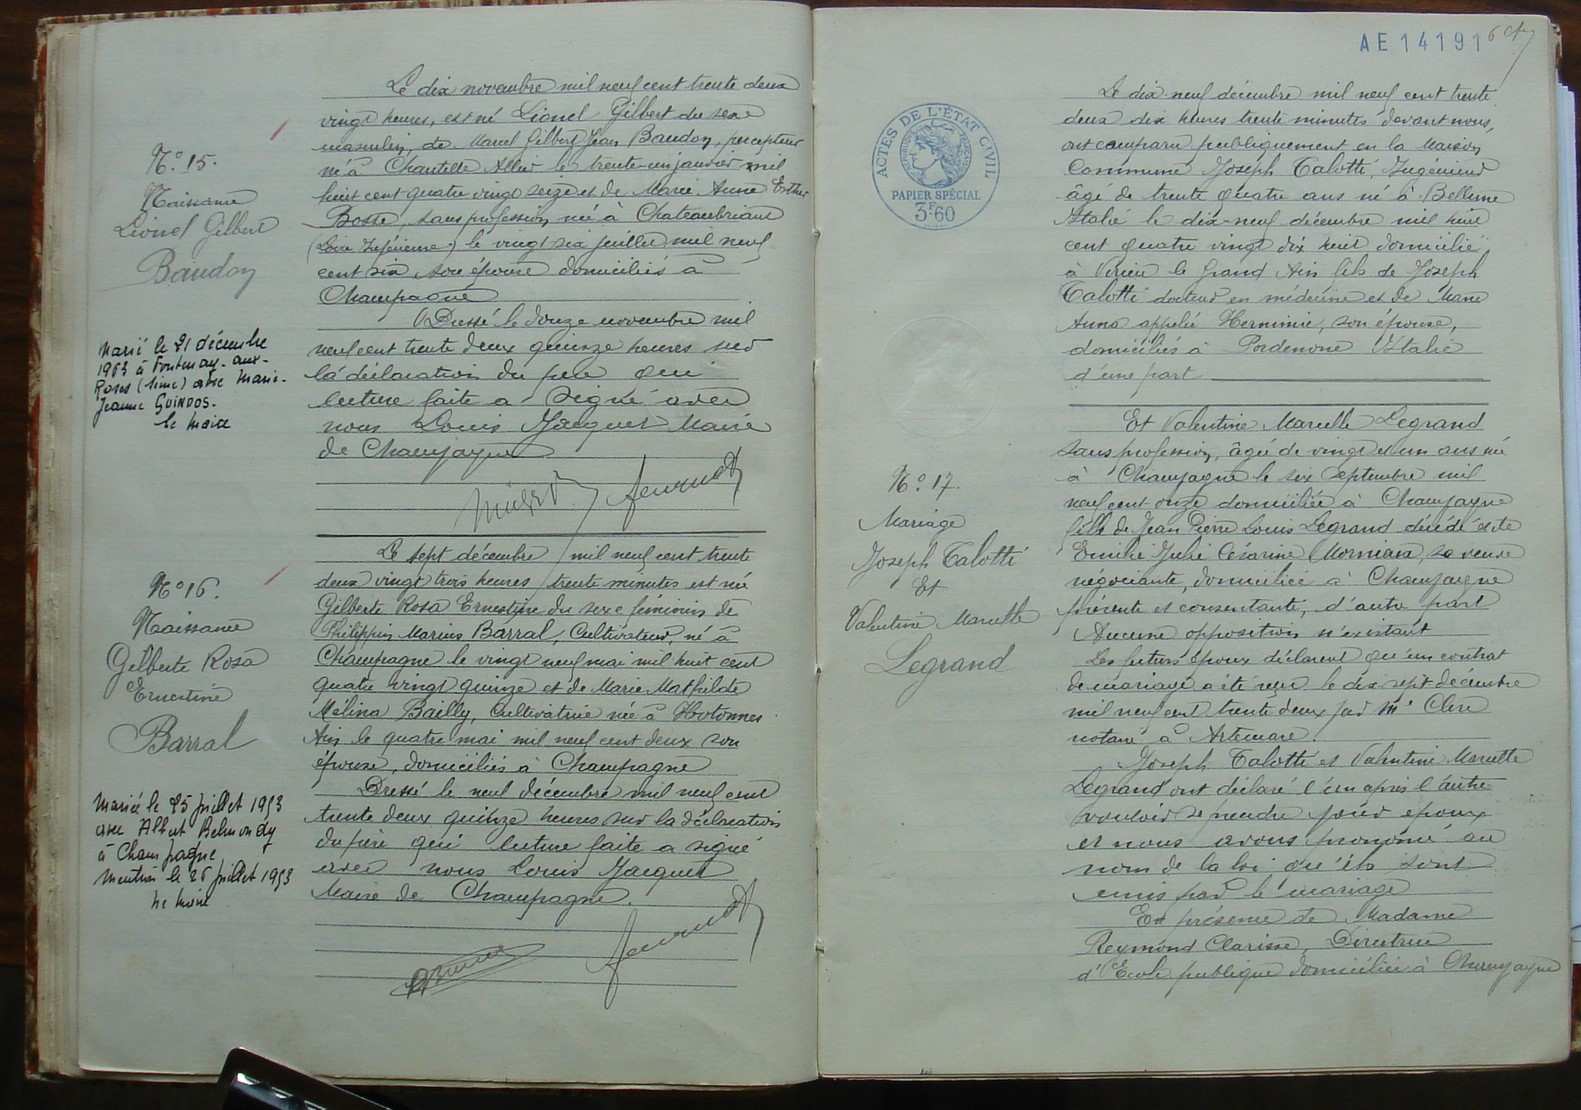 Le dix novembre mil neuf cent trente deux
vingt heures, est né Lionel Gilbert du sexe
masculin, de Marcel Gilbert Jean Baudon, percepteur
né à Chantelle Allier le trente-un janvier mil
huit cent quatre vingt seize et de Marie Anne Esther
Bosse, sans profession, née à Chateaubriant
(Loire Inférieure) le vingt six juillet mil neuf
cent six son épouse domiciliés à
Champagne
Dressé le douze novembre mil
neuf cent trente deux quinze heures sur
la déclaration du père qui
lecture faite a signé avec
nous Louis Jacquet Maire
de Champagne
N° 15.
Naissance
Lionel Gilbert
Baudon
Marié le 21 décembre
1963 à Fontenay-aux-
Roses (Seine) avec Marie-
Jeanne GUINDOS.
le Maire
Le sept décembre mil neuf cent trente
deux vingt trois heures trente minutes est née
Gilberte Rosa Ernestine du sexe féminin de
Philippin Marius Barral, Cultivateur né à
Champagne le vingt neuf mai mil huit cent
quatre vingt quinze et de Marie Mathilde
Mélina Bailly, Cultivatrice née à Hotonnes
Ain le quatre mai mil neuf cent deux son
épouse, domiciliés à Champagne
Dressé le neuf décembre mil neuf cent
trente deux quinze heures sur la déclaration
du père qui lecture faite a signé
avec nous Louis Jacquet
Maire de Champagne.
N° 16.
Naissance
Gilberte Rosa
Ernestine
Barral
Mariée le 25 juillet 1953
avec Albert Belmondy
à Champagne
Mention le 26 juillet 1953
Le Maire
AE 14191
ACTES DE L'ÉTAT CIVIL
PAPIER SPÉCIAL
3F60
Le dix-neuf décembre mil neuf cent trente
deux dix heures trente minutes devant nous,
ont comparu publiquement en la Maison
Commune Joseph Talotti Ingénieur
âgé de trente quatre ans né à Bellune
Italie le dix-neuf décembre mil huit
cent quatre vingt dix huit domicilié
à Virieu le Grand Ain fils de Joseph
Talotti docteur en médecine et de Marie
Anna appelée Herminie, son épouse,
domiciliés à Pordenone Italie
d'une part
Et Valentine Marcelle Legrand
sans profession, âgée de vingt et un ans née
à Champagne le six Septembre mil
neuf cent onze domiciliée à Champagne
fille de Jean Pierre Louis Legrand décédé et de
Emilie Julie Césarine Morniara, sa veuve
négociante, domiciliée à Champagne
présente et consentante, d'autre part
Aucune opposition n'existant
Les futurs époux déclarent qu'un contrat
de mariage a été reçu le dix sept décembre
mil neuf cent trente deux par Me Clerc
notaire à Artemare
Joseph Talotti et Valentine Marcelle
Legrand ont déclaré l'un après l'autre
vouloir se prendre pour époux
et nous avons prononcé au
nom de la loi qu'ils sont
unis par le mariage
En présence de Madame
Reymond Clarisse, Directrice
d'Ecole publique domiciliée à Champagne
N° 17.
Mariage
Joseph Talotti
Et
Valentine Marcelle
Legrand